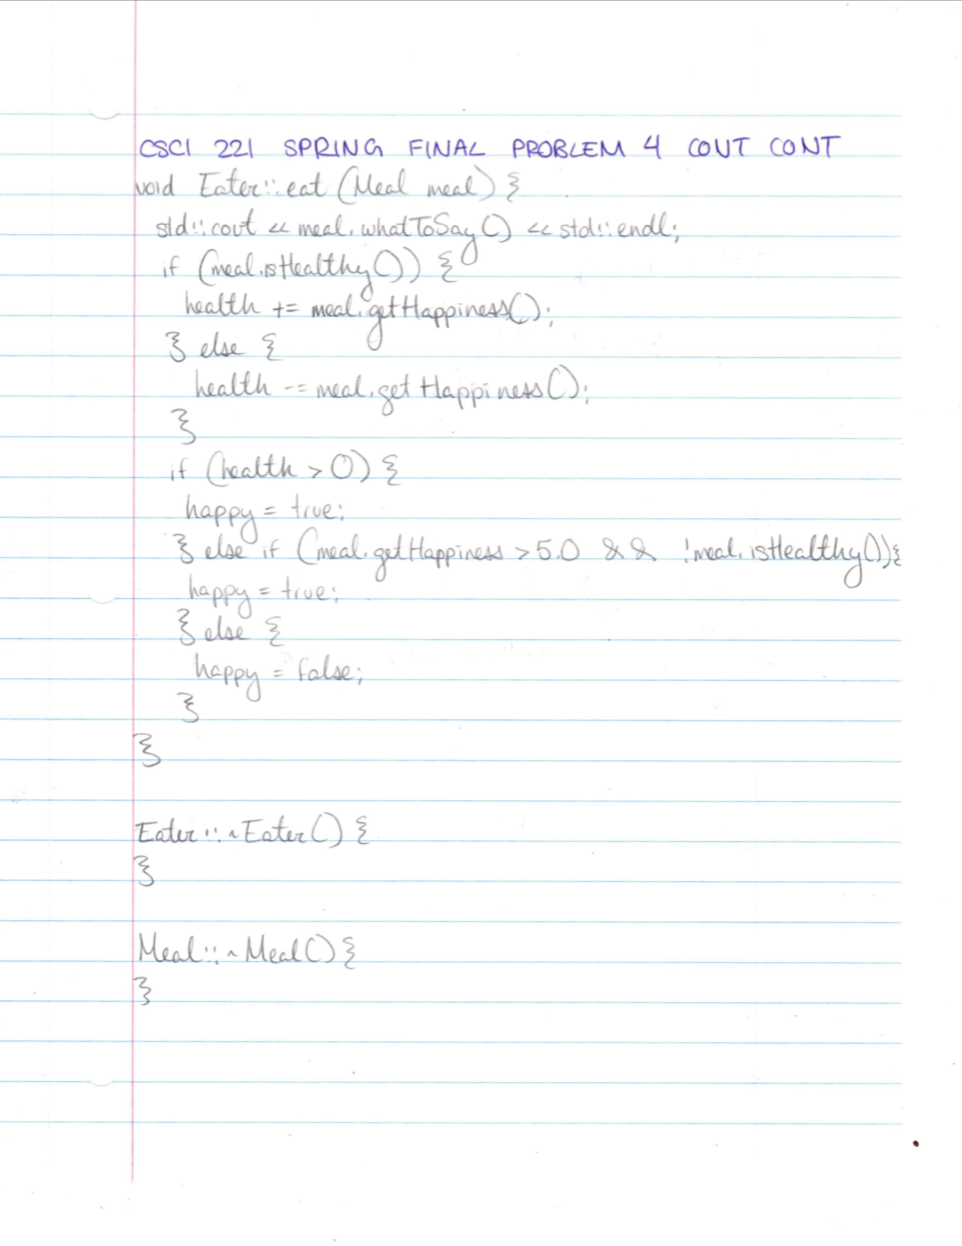 CSCI 221 SPRING FINAL PROBLEM 4 CONT CONT
void Eater::eat (Meal meal) {
std::cout << meal.whatToSay() << std::endl;
if (meal.isHealthy()) {
health += meal.getHappiness();
} else {
health -= meal.getHappiness();
}
if (health > 0) {
happy = true;
} else if (meal.getHappiness > 5.0 && !meal.isHealthy()){
happy = true;
} else {
happy = false;
}
}
Eater::~Eater() {
}
Meal::~Meal() {
}